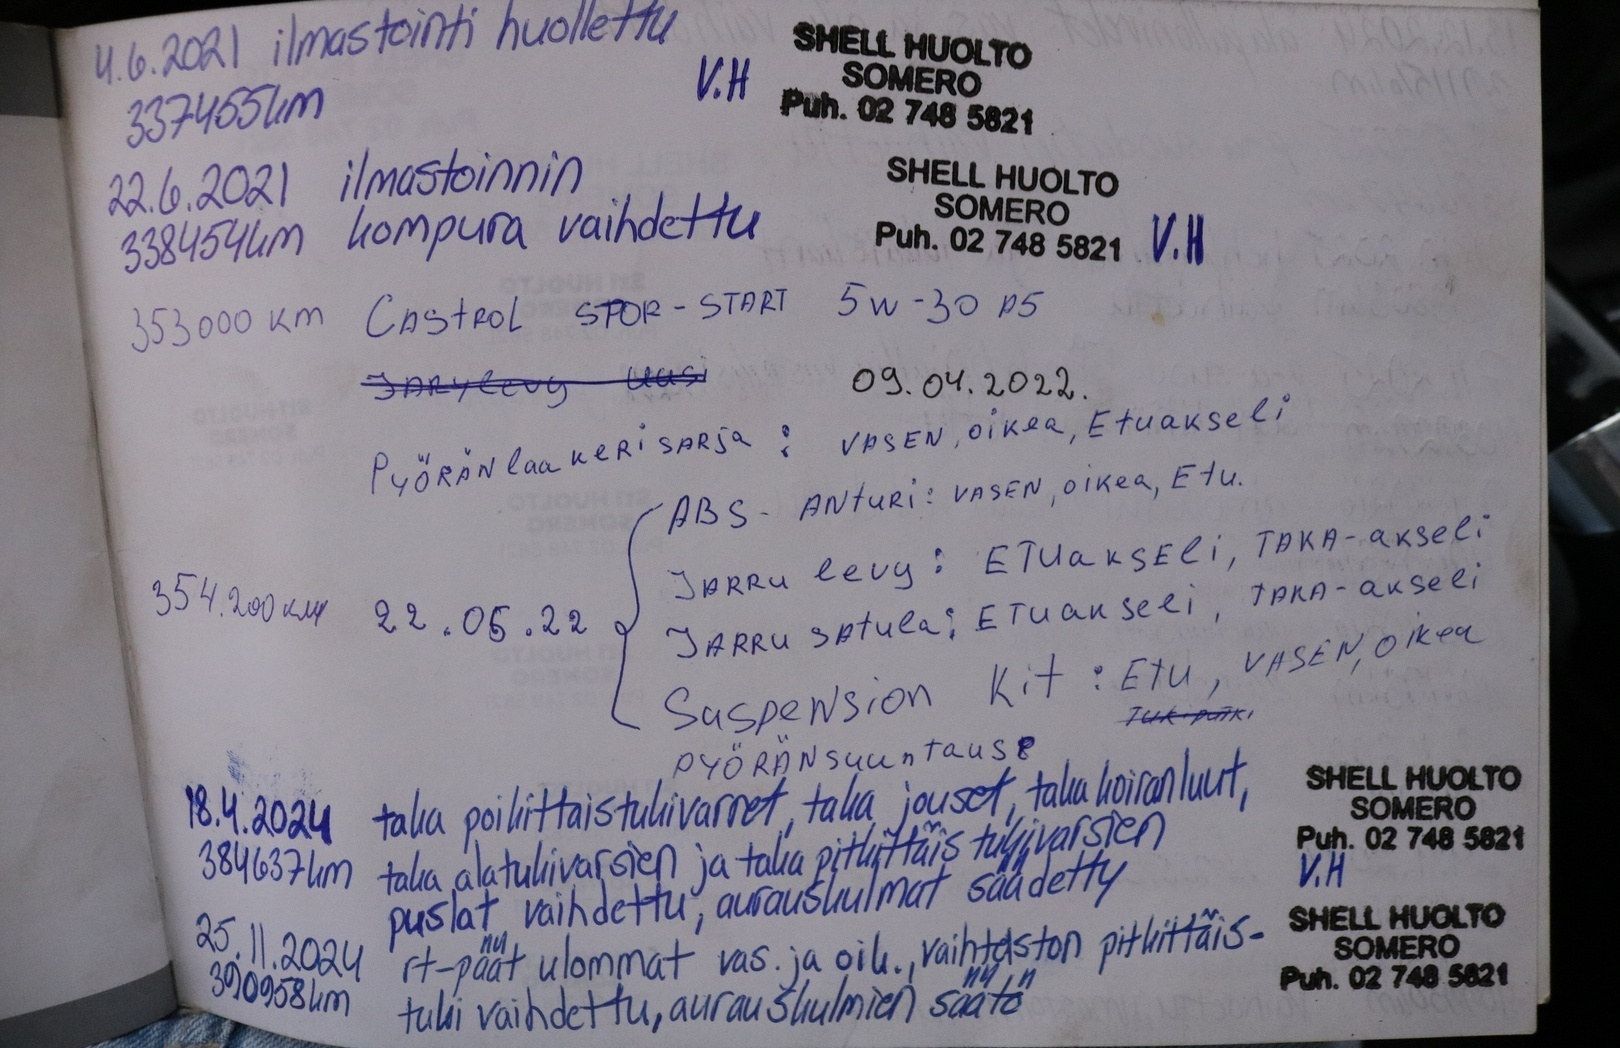 4.6.2021 ilmastointi huollettu
337455km
V.H
SHELL HUOLTO
SOMERO
Puh. 02 748 5821
22.6.2021 ilmastoinnin
338454km kompura vaihdettu
SHELL HUOLTO
SOMERO
Puh. 02 748 5821
V.H
353000 km Castrol STOP-START 5w-30 A5
09.04.2022.
PYÖRÄNlaakeri SARja : VASEN, oikea, Etuakseli
ABS- ANturi: VASEN, oikea, Etu.
JARRu levy: ETUakSELi, TAKA-akseli
354.200km 22.05.22
JARRu satula: ETUakseli, TAKA-akseli
Suspension Kit : Etu, VASEN, oikea
PYÖRÄNsuuntaus
18.4.2024 taka poikittaistukivarret, taka jouset, taka koiranluut,
384637km taka alatukivarsien ja taka pitkittäis tukivarsien
puslat vaihdettu, aurauskulmat säädetty
SHELL HUOLTO
SOMERO
Puh. 02 748 5821
V.H
25.11.2024 rt-päät ulommat vas. ja oik., vaihteston pitkittäis-
390958km tuki vaihdettu, aurauskulmien säätö
SHELL HUOLTO
SOMERO
Puh. 02 748 5821